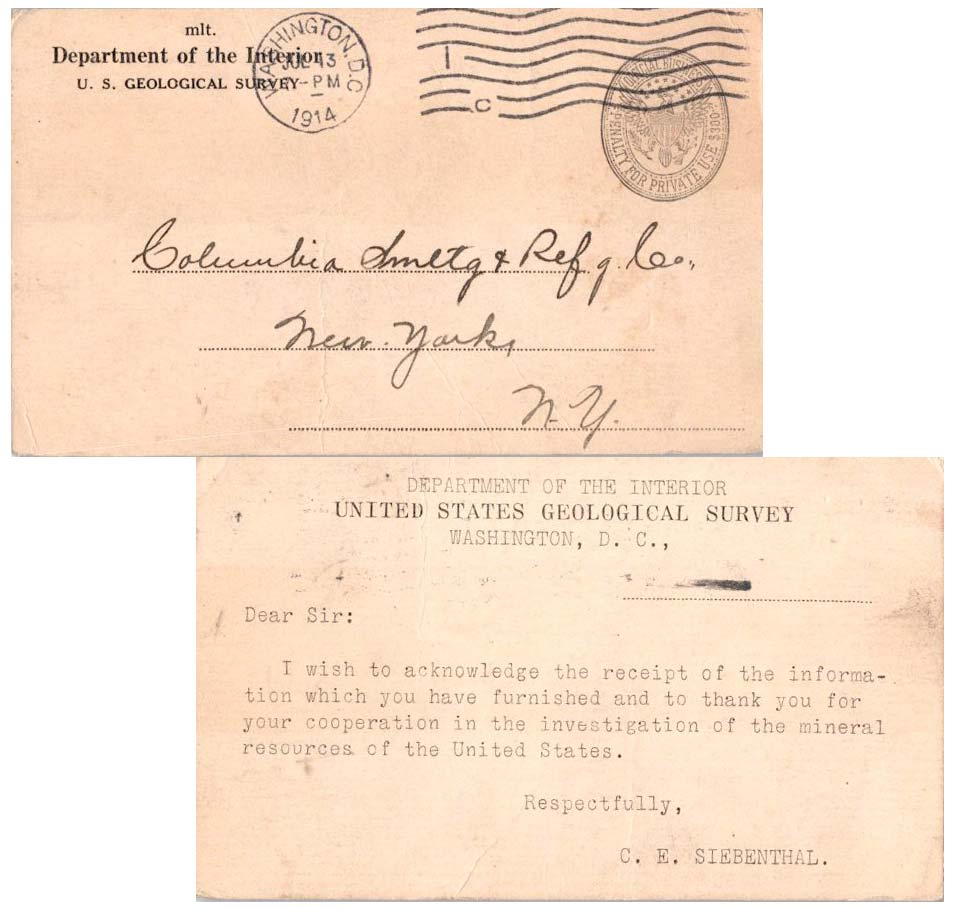 mlt.
Department of the Interior
U. S. GEOLOGICAL SURVEY
WASHINGTON, D.C.
JUL 13
-PM
1914
1
C
OFFICIAL BUSINESS
PENALTY FOR PRIVATE USE $300
Columbia Smeltg & Ref'g. Co.,
New York,
N.Y.
DEPARTMENT OF THE INTERIOR
UNITED STATES GEOLOGICAL SURVEY
WASHINGTON, D. C.,
Dear Sir:
I wish to acknowledge the receipt of the informa-
tion which you have furnished and to thank you for
your cooperation in the investigation of the mineral
resources of the United States.
Respectfully,
C. E. SIEBENTHAL.